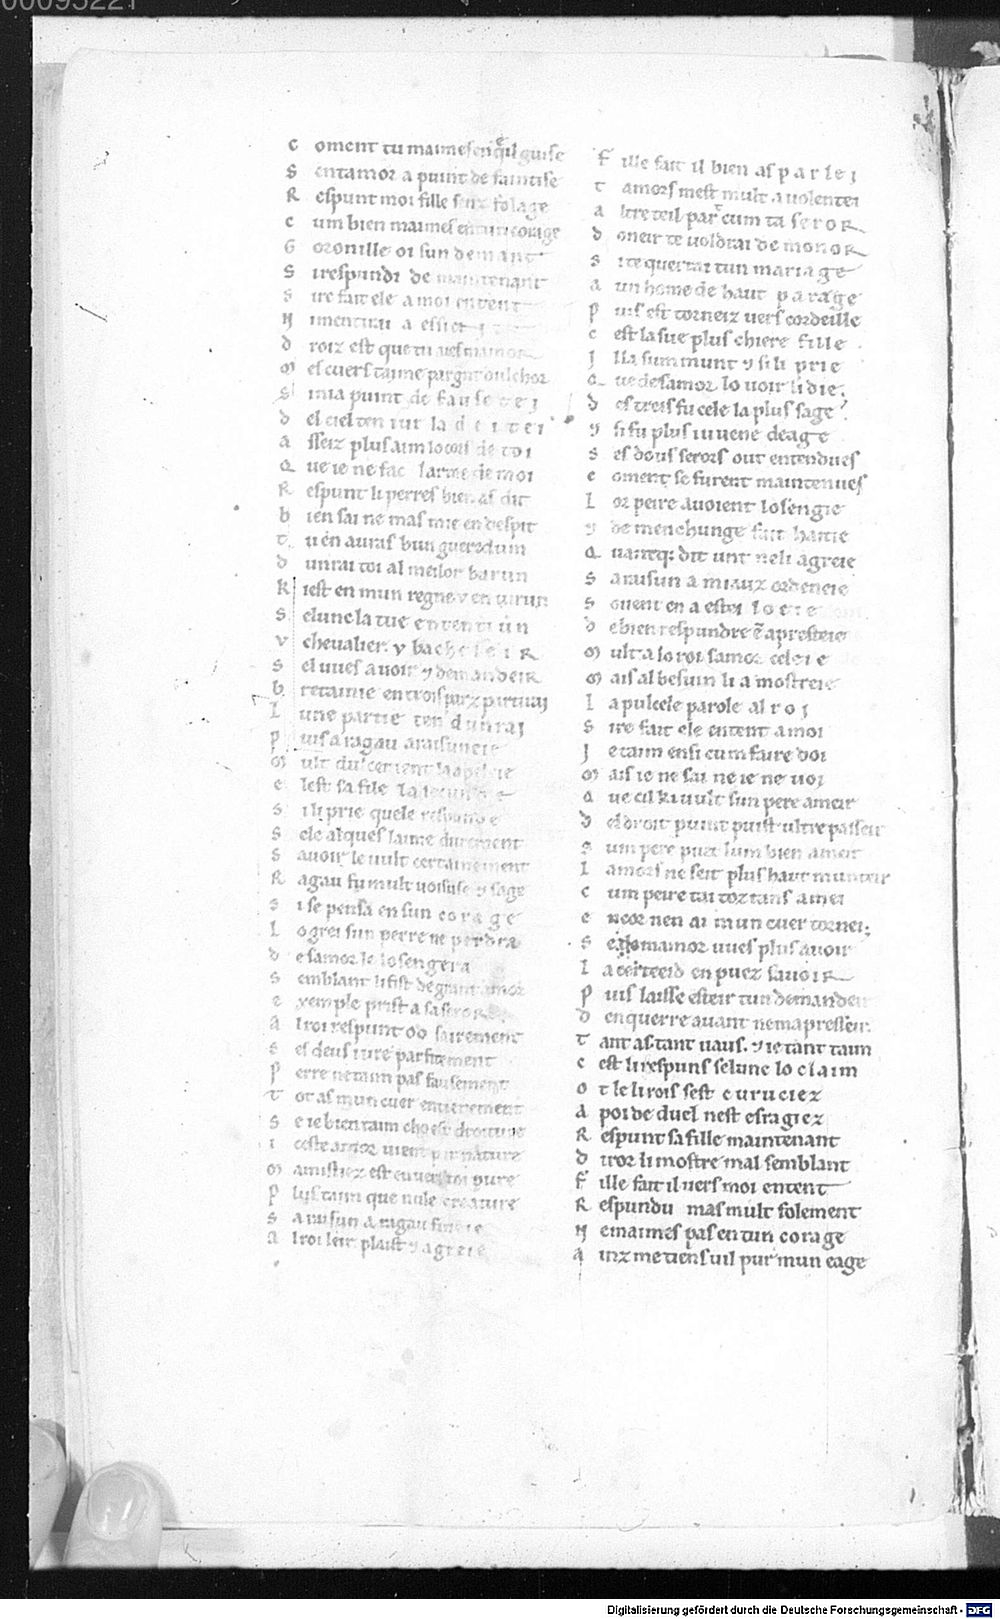 00095221
C oment tu maimes en qeil guise
S en tamor a puint de faintise
R espunt moi fille senz folage
C um bien maimes en tun corage
G oronille oi sun demant
S i respundi de maintenant
S ire fait ele a moi entent
N i mentirai a
D roiz est que tu aies mamor
M es cuers taime par grant
S i nia puint de fausetei
D el ciel ten iur la deitei
A sseiz plus aim lo cors de toi
Q ue ie ne fac larme de moi
R espunt li perres bien as dit
B ien sai ne mas mie en despit
T u en auras bun gueredum
D unrai toi al meilor barun
K i est en mun regne v en tirun
S elunc la tue ententiun
V chevalier v bacheleir
S el vues avoir 7 demandeir
B retainie en trois parz partirai
L une partie ten dunrai
P uis a ragau araisuneie
M ult dulcement
E lest sa file la
S i li prie quele responde
S ele alques laime durement
S avoir le vult certainement
R agau fu mult voisuse 7 sage
S i se pensa en sun corage
L o grei sun perre ne perdra
D e samor le losengera
S emblant li fist de grant amor
E xemple prist a sa seror
A l roi respunt od sairement
S es deus iure parfitement
P erre ne taim pas fausement
T ot as mun cuer entierement
S e ie bien taim cho est droiture
I ceste amor vient par nature
M amistiez est envers toi pure
P lus taim que nule creature
S a raisun a ragau fineie
A l roi leir plaist 7 agreie
F ille fait il bien as parlei
T amors mest mult a volentei
A ltreteil part cum ta seror
D oneir te voldrai de monor
S i te querrai tun mariage
A un home de haut parage
P uis est torneiz vers cordeille
C est la sue plus chiere fille
I l la summunt 7 si li prie
Q ue de samor lo voir li die.
D es treis fu cele la plus sage
7 si fu plus iuvene deage
S es dous serors out entendues
C oment se furent maintenues
L or peire avoient losengie
7 de menchunge fait haitie
Q uantq: dit unt neli agreie
S a raisun a miauz ordeneie
S ouent en a estei
D e bien respundre ē apresteie
M ult a lo roi samor celeie
M ais al besuin li a mostreie
L a pulcele parole al roi
S ire fait ele entent a moi
I e taim ensi cum faire doi
M ais ie ne sai ne ie ne voi
Q ue cil ki vult sun pere ameir
D el droit puint puist ultre passeir
S um pere puet lum bien ameir
L amors ne seit plus haut munteir
C um peire tai toz tans amei
E ncor nen ai mun cuer tornei;
S e de mamor vues plus avoir
L a certeeid en puez savoir
P uis laisse esteir tun demandeir
D enquerre avant ne mapresseir.
T ant as. tant vaus. 7 ie tant taim
C est li respuns selunc lo claim
O t le li rois sest curuciez
A poi de duel nest esragiez
R espunt sa fille maintenant
D iror li mostre mal semblant
F ille fait il vers moi entent
R espundu mas mult folement
N e maimes pas en tun corage
A inz me tiens vil pur mun eage
Digitalisierung gefördert durch die Deutsche Forschungsgemeinschaft - DFG